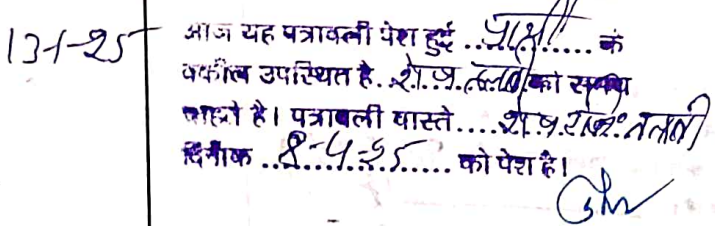 13-1-25 आज यह पत्रावली पेश हुई ..प्रार्थी..... के
वकील उपस्थित है. शे.प्र. तलबी को समय
चाहते है। पत्रावली वास्ते ....शे.प्र. रजि. तलबी
दिनांक ..8-4-25..... को पेश है।